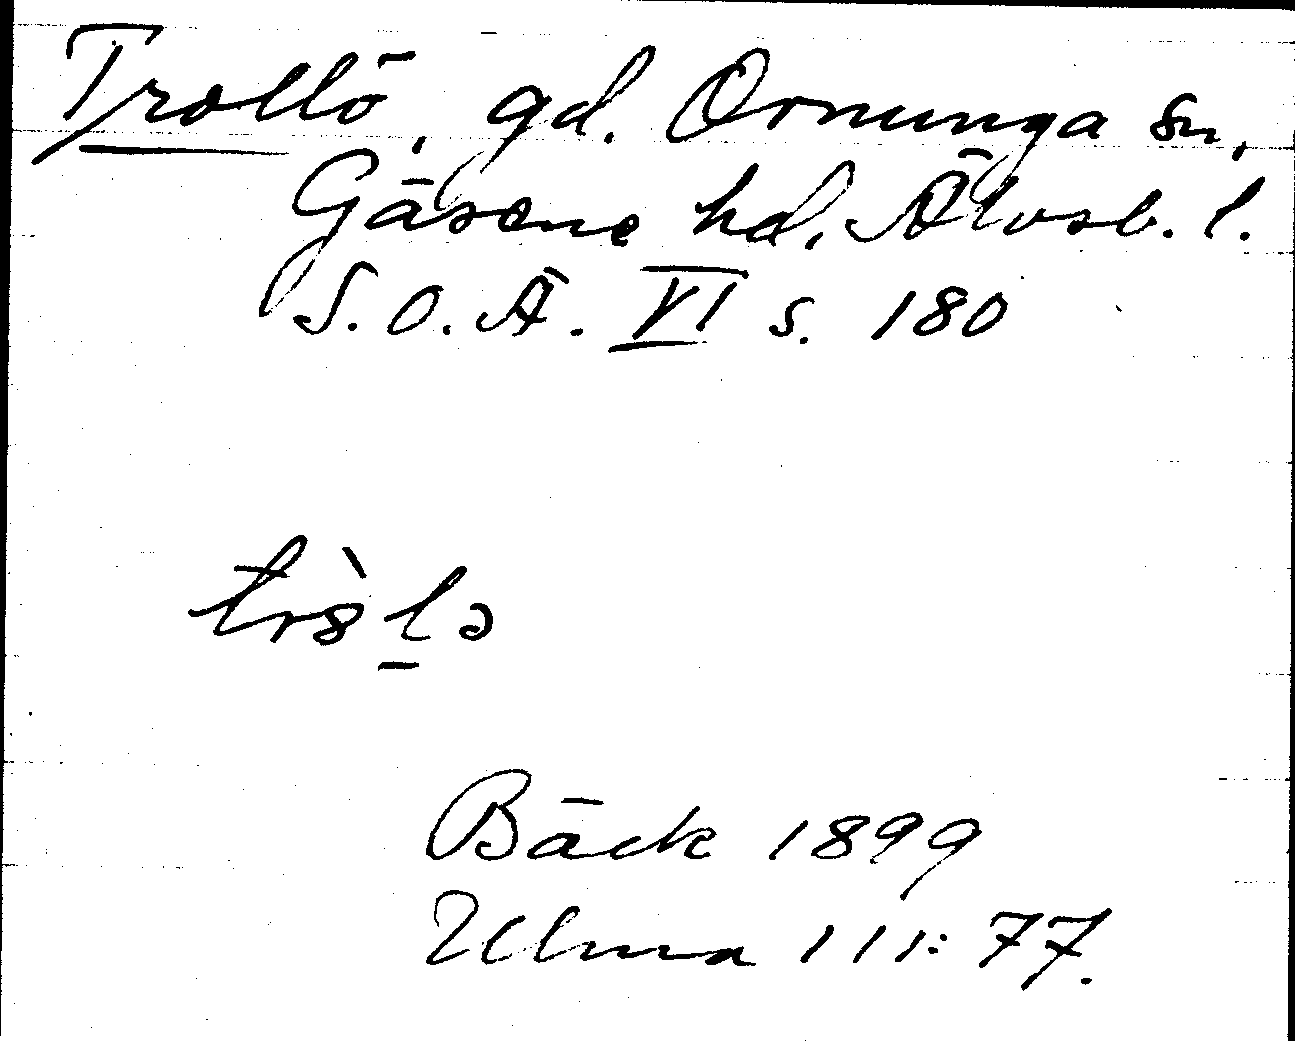 Trollö, gd. Ornunga sn,
Gäsene hd. Älvsb. l.
S. O. Ä. VI s. 180
trò̀8lə
Bäck 1899
Ulma 111:77.